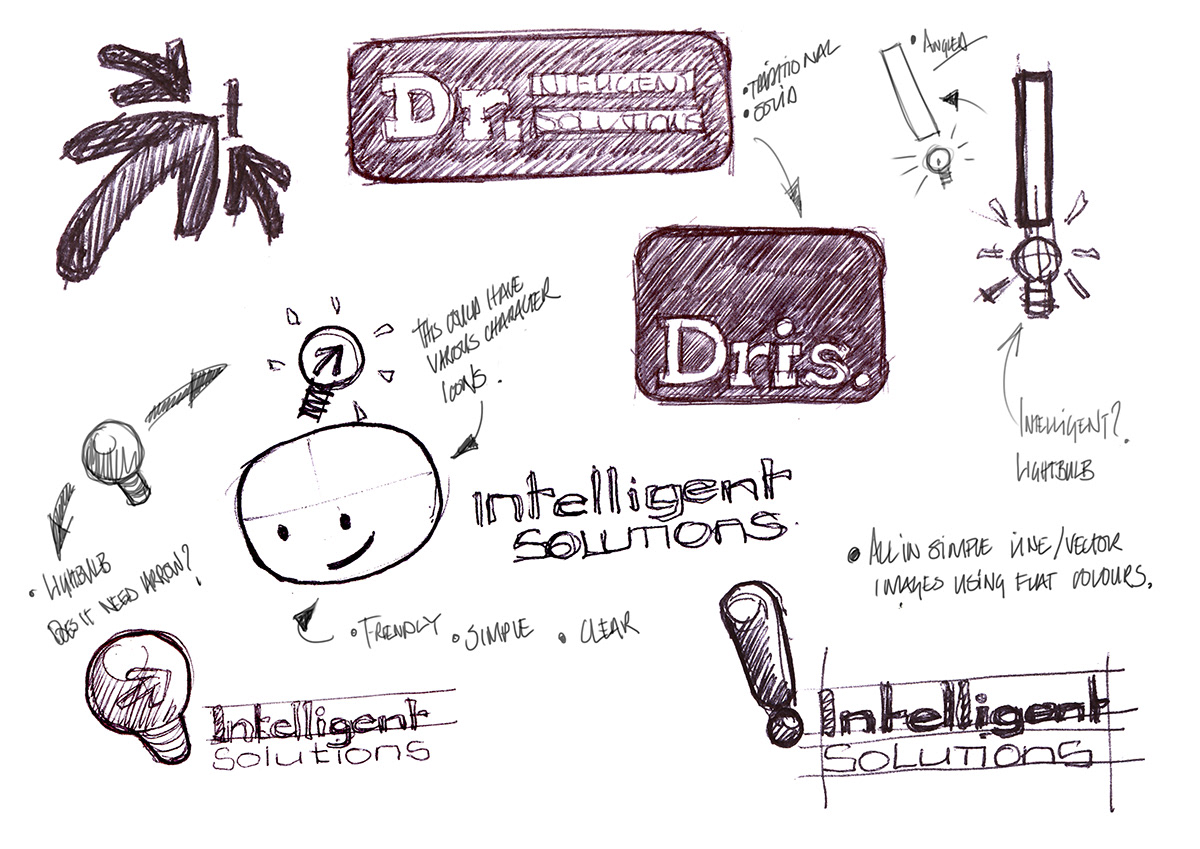 Dr.
INTELIGENT
SOLUTIONS
• TRADITIONAL
• SOLID
• ANGLED
Dris.
THIS COULD HAVE
VARIOUS CHARACTER
ICONS.
INTELLIGENT?
LIGHTBULB
Intelligent
SOLUTIONS.
• LIGHTBULB
DOES IT NEED ARROW?
• ALL IN SIMPLE LINE/VECTOR
IMAGES USING FLAT COLOURS.
• FRIENDLY • SIMPLE • CLEAR
Intelligent
Solutions
Intelligent
SOLUTIONS